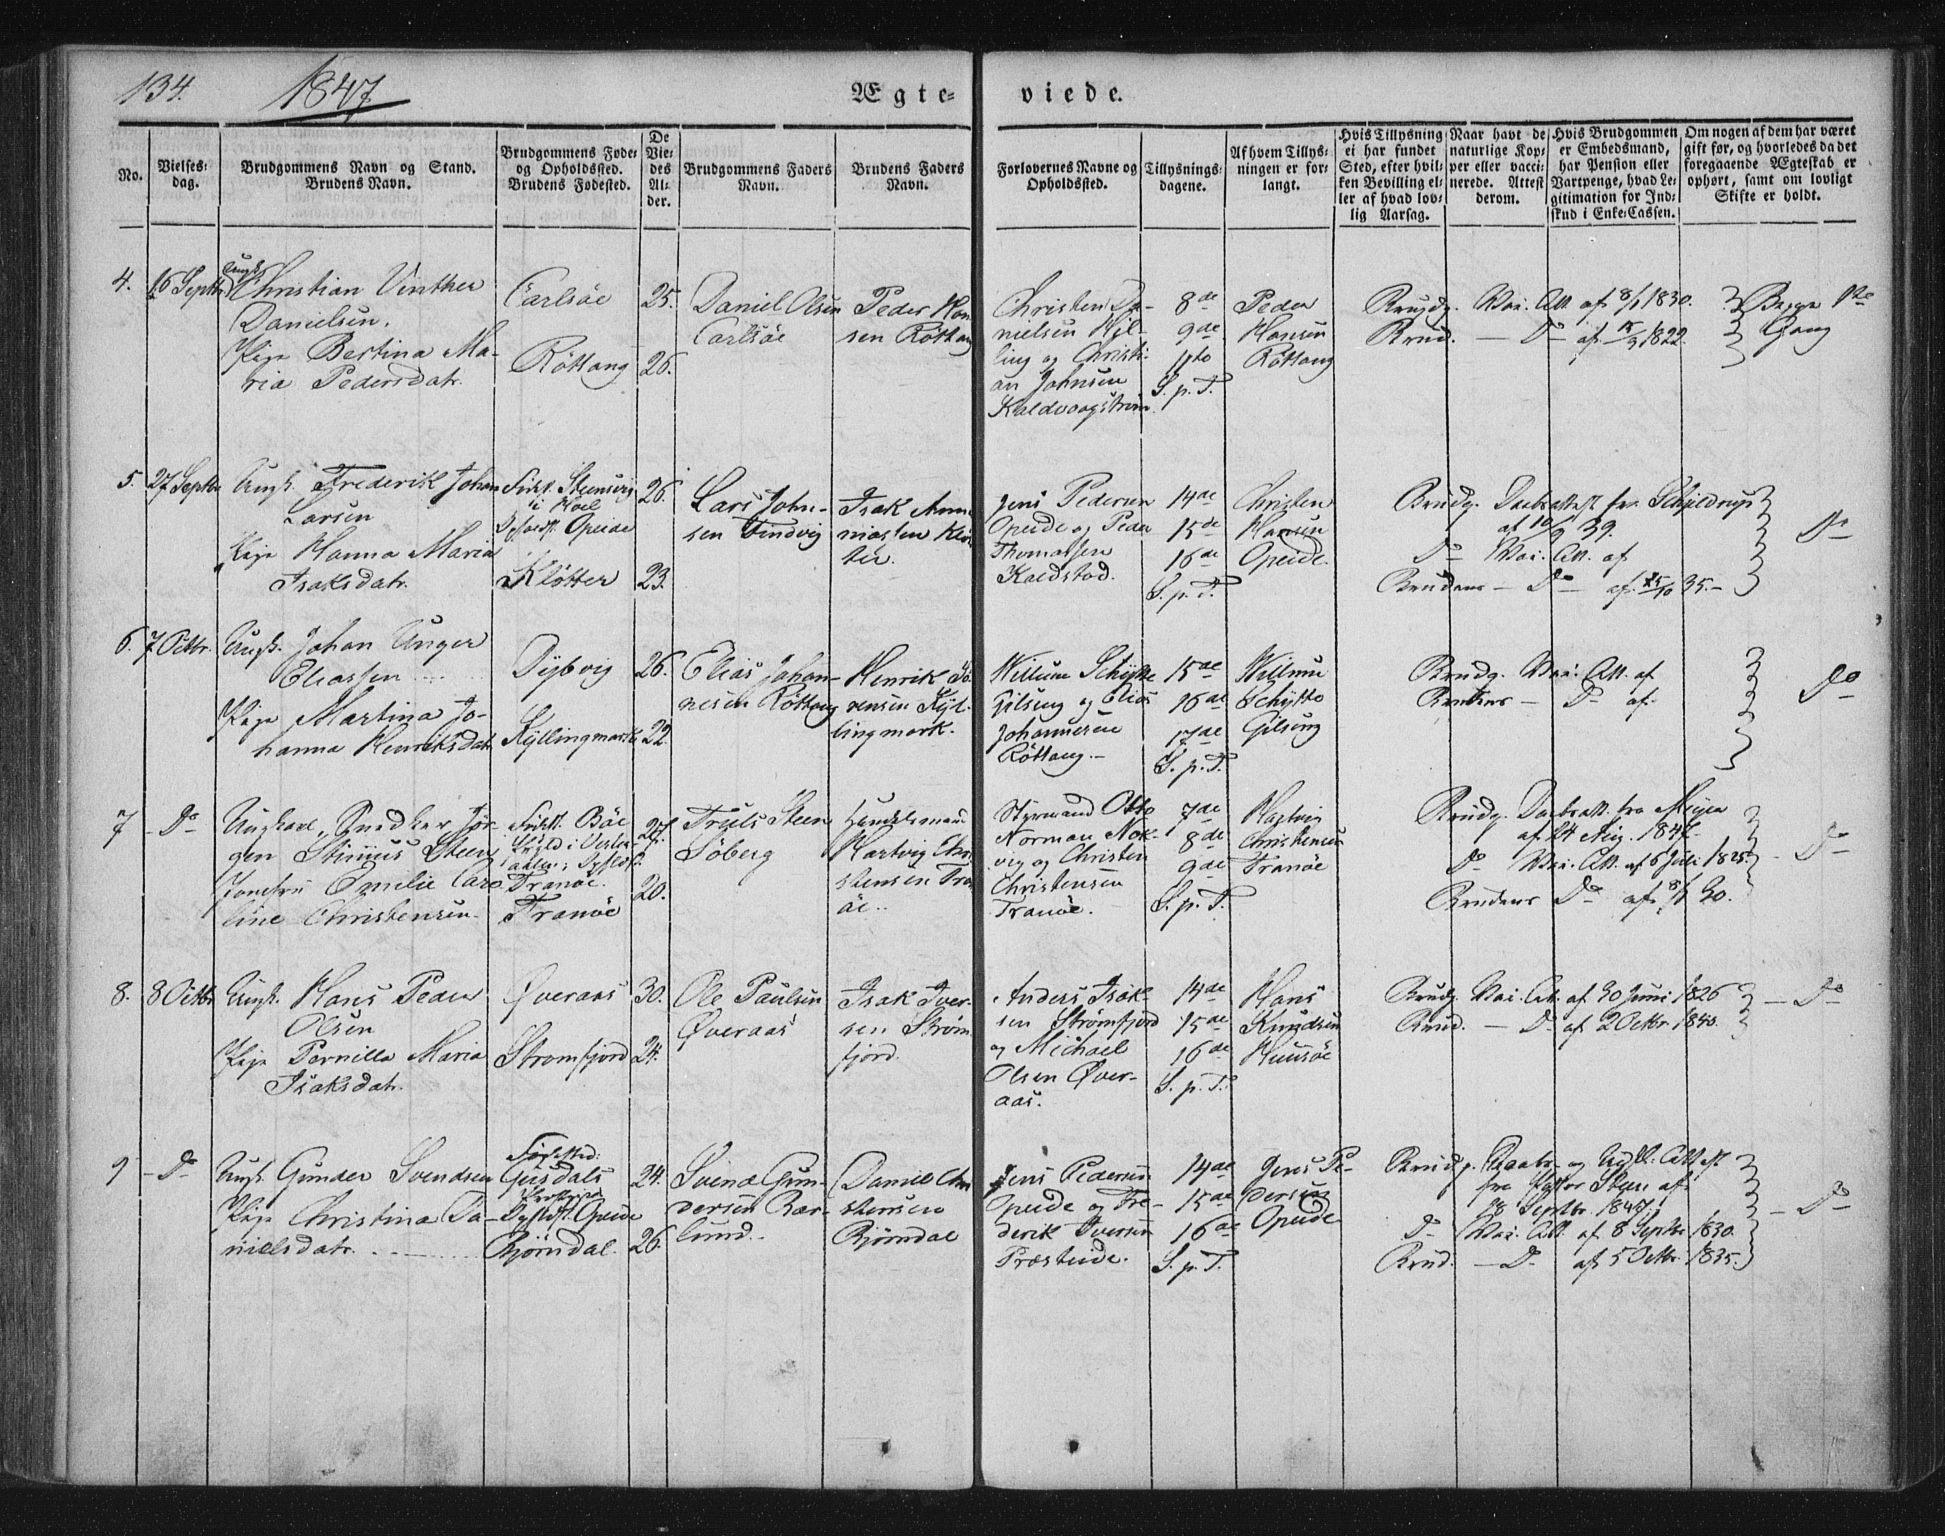 134.
1847
Ægte-
viede.
No.
Vielses-
dag.
Brudgommens Navn og Stand.
Brudens Navn.
Brudgommens Føde-
og Opholdssted.
Brudens Fødested.
De
Vie-
des
Al-
der.
Brudgommens Faders
Navn.
Brudens Faders
Navn.
Forlovernes Navne og
Opholdssted.
Tillysnings-
dagene.
Af hvem Tillys-
ningen er for-
langt.
Hvis Tillysning
ei har fundet
Sted, efter hvil-
ken Bevilling el-
ler af hvad lov-
lig Aarsag.
Naar havt de
naturlige Kop-
per eller vacci-
nerede. Attest
derom.
Hvis Brudgommen
er Embedsmand,
har Pension eller
Vartpenge, hvad Le-
gitimation for Ind-
skud i Enke-Cassen.
Om nogen af dem har været
gift før, og hvorledes da det
foregaaende Ægteskab er
ophørt, samt om lovligt
Skifte er holdt.
4.
16 Septbr
Ungk.
Christian Vinther
Danielsen.
Pige Bertina Ma-
ria Pedersdatr.
Carlsöe
Röttang
25.
26.
Daniel Olsen
Carlsöe
Peder Han-
sen Röttang
Christen Da-
nielsen Kjel-
ling og Christi-
an Johnsen
Kaldvaagstrøm.
8de
9de
S. p. T.
Peder
Hansen
Röttang
Brudg. Vac. Att. af 8/9 1830.
Brud. — Do af 1822
Begge 1te
Gang
5.
27 Septbr
Ungk. Frederik Johan
Larsen
Pige Hanna Maria
Isaksdatr.
Födst. Steensvig
Opeide
Kløtter
26.
23.
Lars John-
sen Findvig
Isak
ter.
Jens Pedersen
Opeide og Peder
Thomassen
Kaldstad.
14de
15de
16de
S. p. T.
Christen
Hansen
Opeide.
Brudg. Daabsattest fra
af 10/ 39.
Do Vac. Att. af
Brudens — Do — af 25/10 35.—
Do
6.
7 Octbr.
Ungk. Johan Unger
Eliassen ...
Pige Martina Jo-
hanna Henriksdatr
Dybvig
Kyllingmark
26.
22.
Elias Johan-
nesen Röttang
Henrik Sö-
rensen Kyl-
lingmark.
Willum Schytte
Gilsing og Elias
Johannesen
Röttang.—
15de
16de
17de
S. p. T.
Willum
Schytte
Gilsing
Brudg. Vac. Att. af
Brudens — Do af
Do
7
Do
Ungkarl, Snedker Jør-
gen Stinius Steen
Jomfru Emilie Caro-
line Christensen.
Födst. Böe
Tranöe.
Tranöe
27.
20.
Truls Steen
Söberg
Handelsmand
Hartvig Chri-
stensen Tran-
öe.
Styrmand Otto
Norman
og Christen
Christensen
Tranöe.
7de
8de
9de
S. p. T.
Hartvig
Christensen
Tranöe
Brudg. Daabsatt. fra
af 24 Aug. 1847
Do Vac. Att. af 6 Juli 1825.
Brudens Do af 30.
Do
8.
8 Octbr
Ungk. Hans Peder
Olsen
Pige Pernilla Maria
Isaksdatr.
Øveraas
Stromfjord
30.
24.
Ole Paulsen
Øveraas
Isak Iver-
sen Strøm-
fjord.
Anders Isak-
sen Strømfjord
og Michael
Olsen Øver-
aas.
14de
15de
16de
S. p. T.
Hans
Knudsen
Brudg. Vac. Att. af 30 Juni 1826
Brud. — Do af 2 Octbr. 1840.
Do
9
Do
Ungk. Gunder Svendsen
Pige Christina Da-
nielsdatr.
Födested:
Gusdals
Opeide
Bjørndal.
24.
26.
Svend Gun-
dersen Bær-
lund.
Daniel Chri-
stensen
Bjørndal
Jens Pedersen
Opeide og Fre-
derik Iversen
Præsteide.
14de
15de
16de
S. p. T.
Jens Pe-
dersen
Opeide
Brudg. Daabs- og Udfl. Attest
fra Pastor Steen af
18 Septbr. 1847.
Do Vac. Att. af 8 Septbr 1830.
Brud. — Do. af 5 Octbr. 1835.
Do